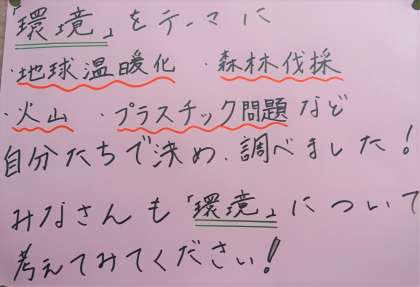 「環境」をテーマに
・地球温暖化 ・森林伐採
・火山 ・プラスチック問題など
自分たちで決め、調べました!
みなさんも「環境」について
考えてみてください!